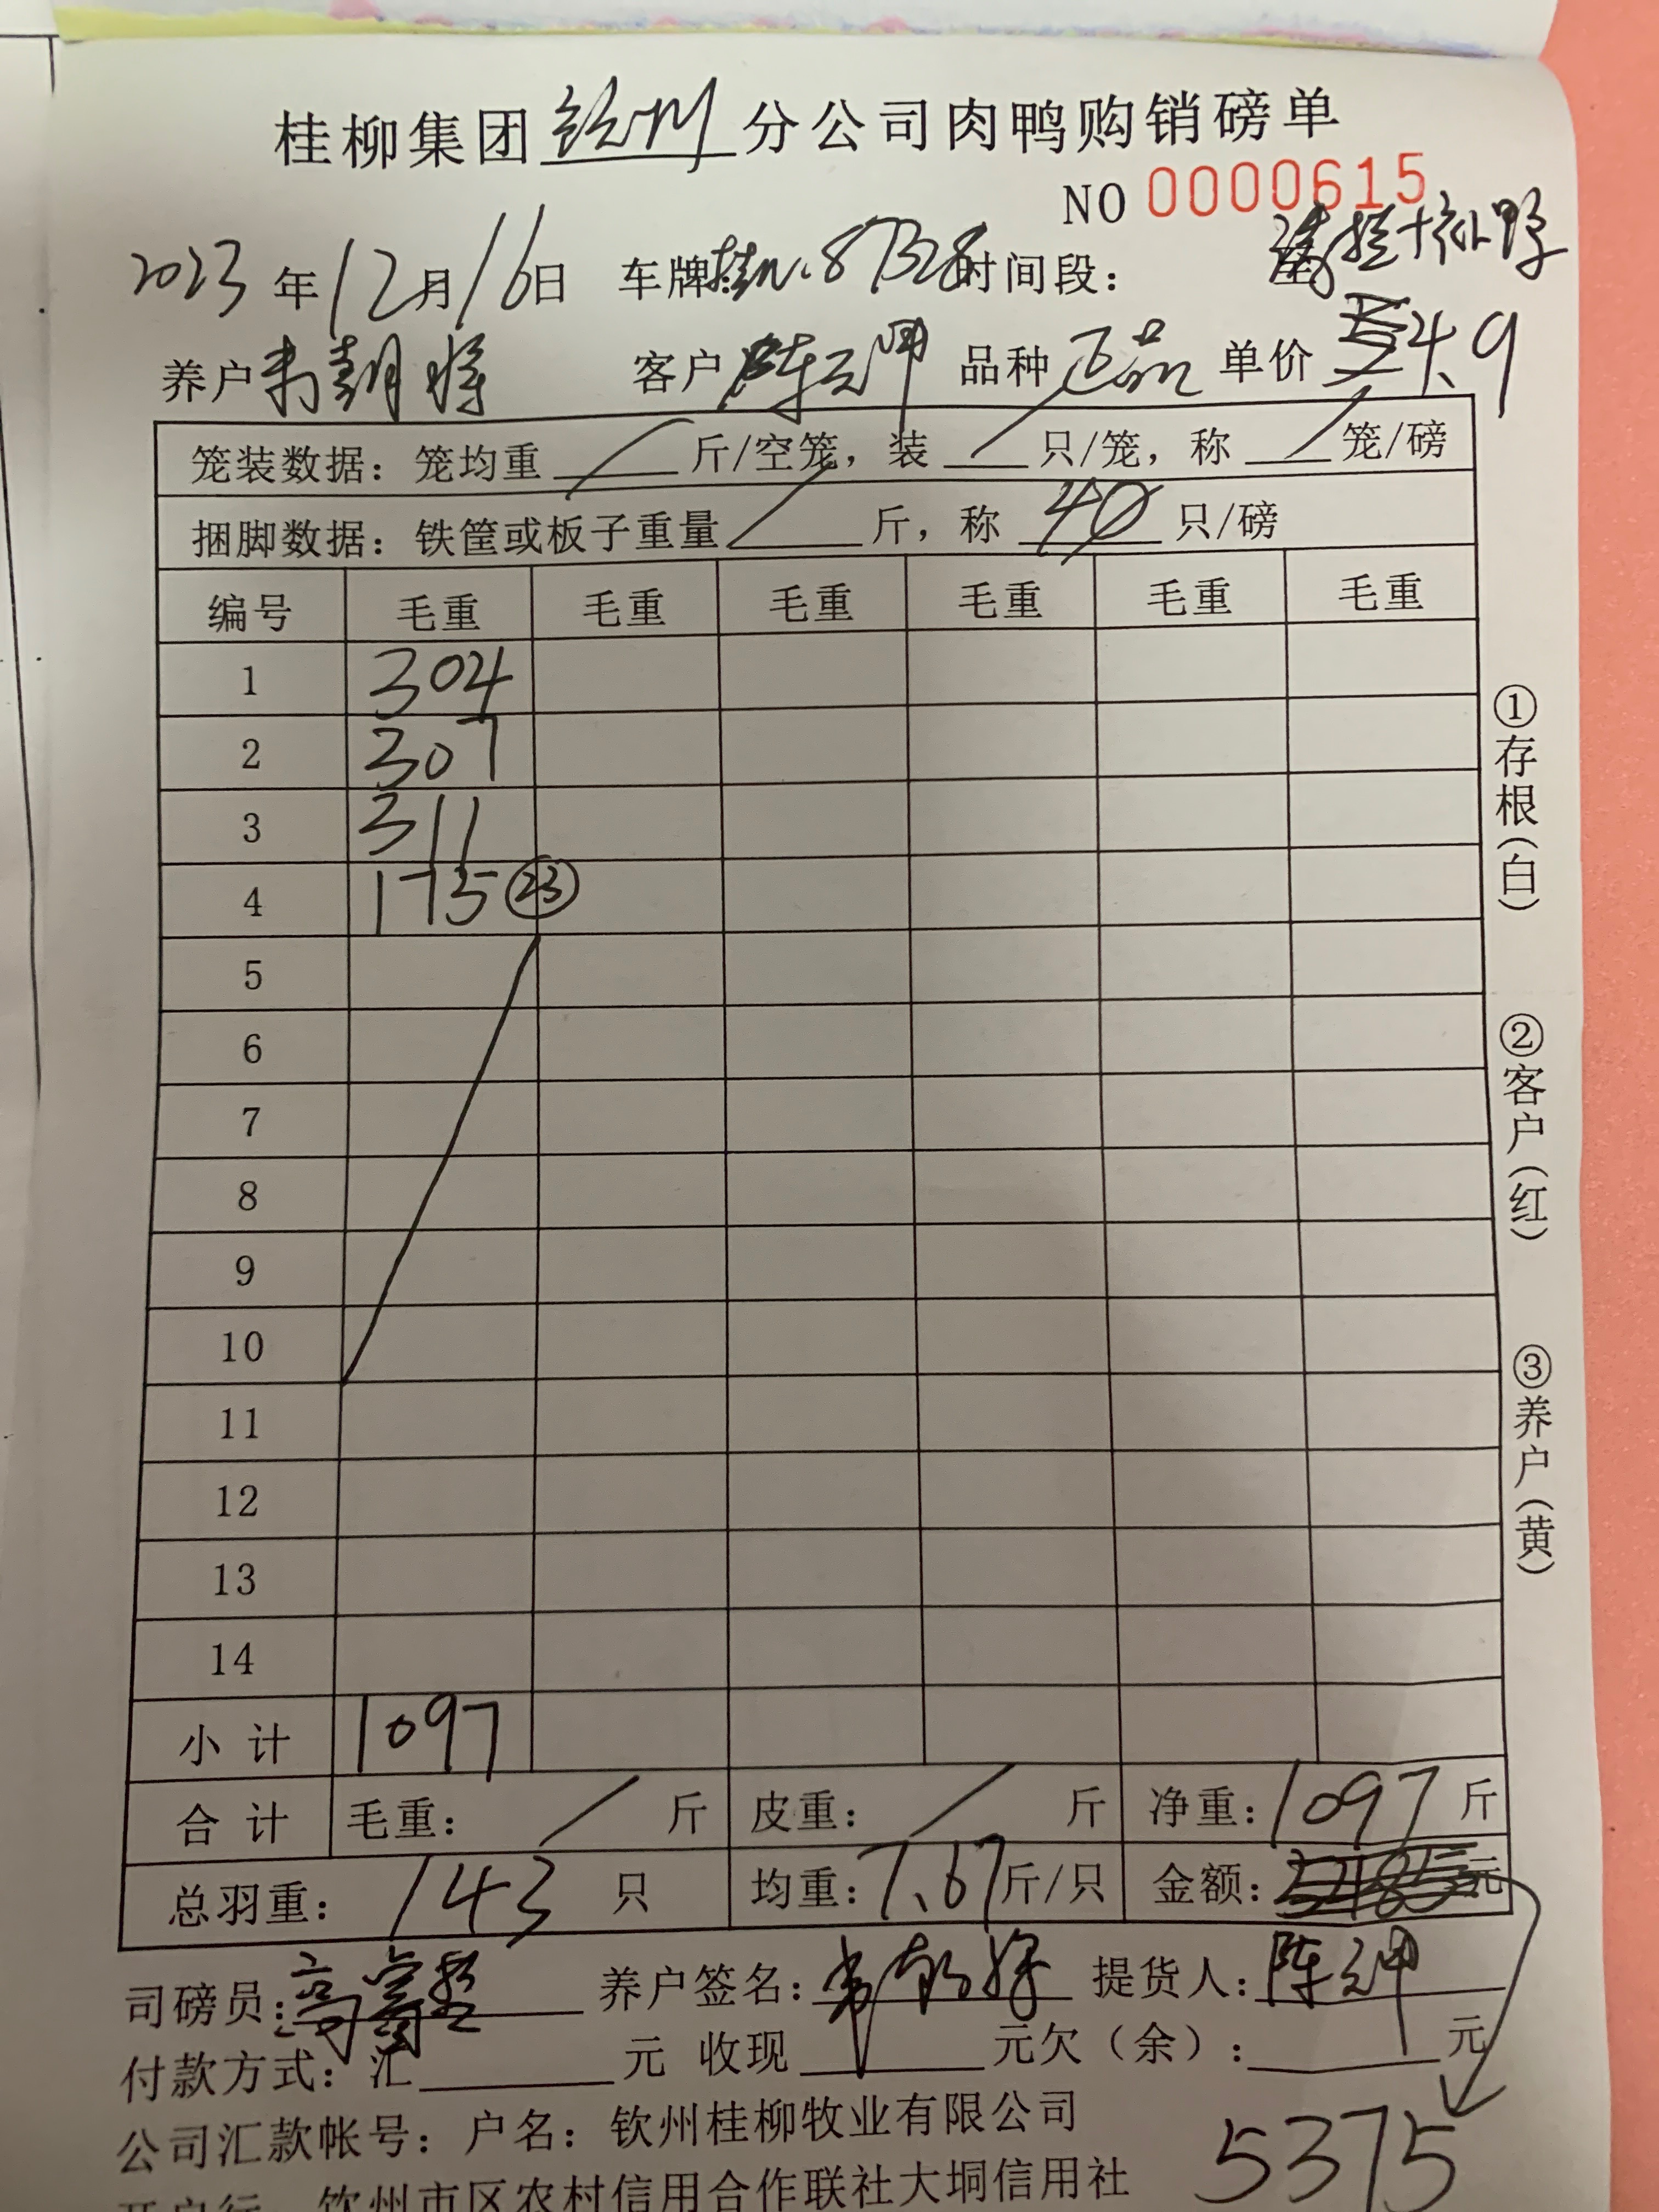 桂柳集团钦州分公司肉鸭购销磅单
NO 0000615
2023年12月16日 车牌:桂N.87328 时间段:
养户 客户陈元甲 品种正品 单价4.9
笼装数据:笼均重/斤/空笼,装/只/笼,称/笼/磅
捆脚数据:铁筐或板子重量/斤,称40只/磅
编号 毛重 毛重 毛重 毛重 毛重 毛重
1 304
2 307
3 311
4 175 ㉓
5
6
7
8
9
10
11
12
13
14
小计 1097
合计 毛重:/斤 皮重:/斤 净重:1097斤
总羽重:143只 均重:7.67斤/只 金额:元
司磅员: 养户签名: 提货人:陈元甲
付款方式:汇______元 收现______元欠(余):______元
5375
公司汇款帐号:户名:钦州桂柳牧业有限公司
开户行:钦州市区农村信用合作联社大垌信用社
①存根(白)
②客户(红)
③养户(黄)